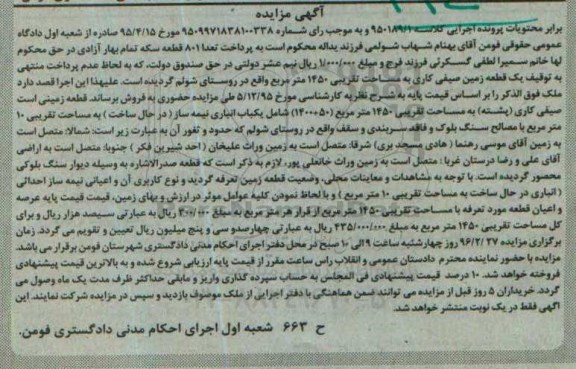 آگهی مزایده
برابر محتویات پرونده اجرایی کلاسه 950189/1 و به موجب رای شماره 9509971838100338 مورخ 95/4/15 صادره از شعبه اول دادگاه
عمومی حقوقی فومن آقای بهنام شهاب شولمی فرزند یداله محکوم است به پرداخت تعداد 801 قطعه سکه تمام بهار آزادی در حق محکوم
لها خانم سمیرا لطفی گسکرئی فرزند فرج و مبلغ 1/000/000 ریال نیم عشر دولتی در حق صندوق دولت، که به لحاظ عدم پرداخت منتهی
به توقیف یک قطعه زمین صیفی کاری به مساحت تقریبی 1450 متر مربع واقع در روستای شولم گردیده است. علیهذا این اجرا قصد دارد
ملک فوق الذکر را بر اساس قیمت پایه به شرح نظریه کارشناسی مورخ 5/12/95 طی مزایده حضوری به فروش برساند. قطعه زمینی است
صیفی کاری (پشته) به مساحت تقریبی 1450 متر مربع (50+1400) شامل یکباب انباری نیمه ساز (در حال ساخت) به مساحت تقریبی 10
متر مربع با مصالح سنگ بلوک و فاقد سربندی و سقف واقع در روستای شولم که حدود و ثغور آن به عبارت زیر است: شمالا: متصل است
به زمین آقای موسی رهنما (هادی مسجد بری) شرقا: متصل است به زمین وراث علیخان (احد شیرین فکر) جنوبا: متصل است به اراضی
آقای علی و رضا درستان غربا: متصل است به زمین وراث خانعلی پور، لازم به ذکر است که قطعه صدرالاشاره به وسیله دیوار سنگ بلوکی
محصور گردیده است. با توجه به مشاهدات و معاینات محلی، وضعیت قطعه زمین تعرفه گردید و نوع کاربری آن و اعیانی نیمه ساز احداثی
(انباری در حال ساخت به مساحت تقریبی 10 متر مربع) و با لحاظ نمودن کلیه عوامل موثر در ارزش و بهای زمین، قیمت قیمت پایه عرصه
و اعیان قطعه مورد تعرفه با مساحت تقریبی 1450 متر مربع از قرار هر متر مربع به مبلغ 300/000 ریال به عبارتی سیصد هزار ریال و برای
کل مساحت تقریبی 1450 متر مربع به مبلغ 435/000/000 ریال به عبارتی چهارصد و سی و پنج میلیون ریال تعیین و تقویم می گردد. زمان
برگزاری مزایده 96/2/27 روز چهارشنبه ساعت 9 الی 10 صبح در محل دفتر اجرای احکام مدنی دادگستری شهرستان فومن برقرار می باشد.
مزایده با حضور نماینده محترم دادستان عمومی و انقلاب راس ساعت مقرر از قیمت پایه ارزیابی شروع شده و به بالاترین قیمت پیشنهادی
فروخته خواهد شد. 10 درصد قیمت پیشنهادی فی المجلس به حساب سپرده گذاری واریز و مابقی حداکثر ظرف مدت یک ماه وصول می
گردد. خریداران 5 روز قبل از مزایده می توانند ضمن هماهنگی با دفتر اجرایی از ملک موصوف بازدید و سپس در مزایده شرکت نمایند. این
آگهی فقط در یک نوبت منتشر خواهد شد.
ح 663 شعبه اول اجرای احکام مدنی دادگستری فومن.